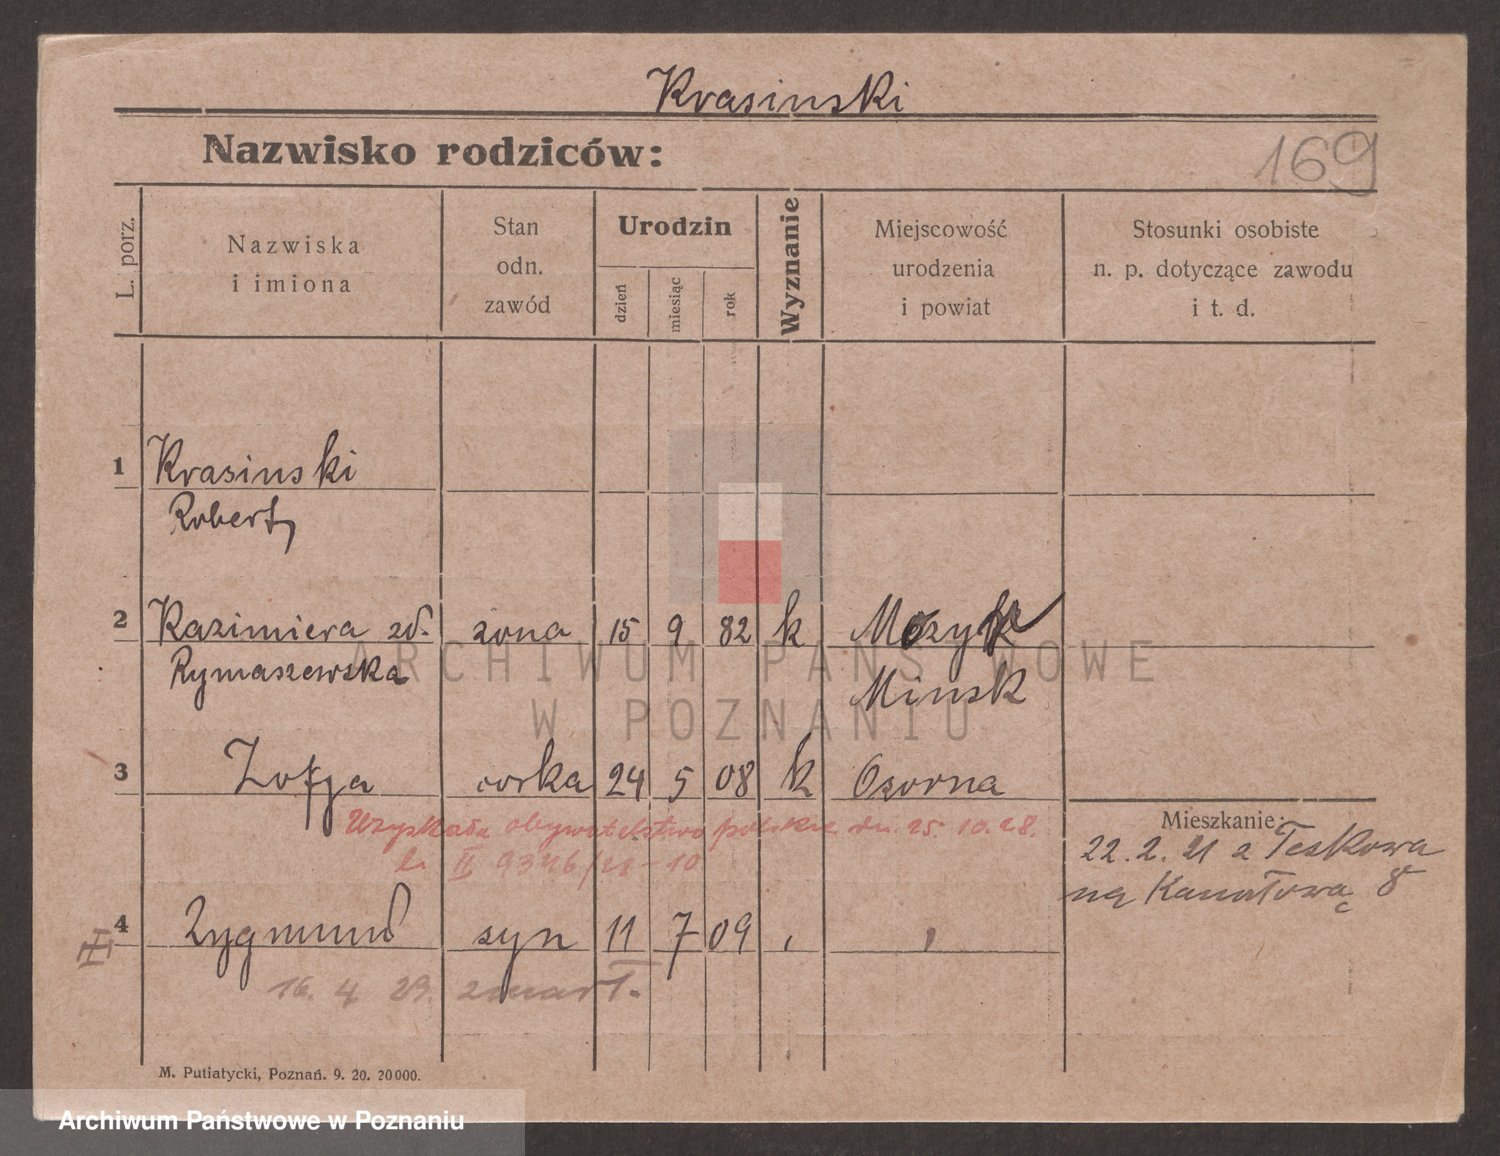 Krasinski
Nazwisko rodziców:
169
L. porz.
Nazwiska
i imiona
Stan
odn.
zawód
Urodzin
dzień
miesiąc
rok
Wyznanie
Miejscowość
urodzenia
i powiat
Stosunki osobiste
n. p. dotyczące zawodu
i t. d.
1 Krasinski
Robert
2 Kazimiera zd. zona 15 9 82 k Mozyr
Rymaszewska Minsk
ARCHIWUM PAŃSTWOWE
W POZNANIU
3 Zofja corka 24 5 08 k Osorna
Uzyskała obywatelstwo polskie dn. 25. 10. 28.
II 9346/28-10
Mieszkanie:
22. 2. 21 z Teskowa
na Kanałową 8
4 Zygmund syn 11 7 09 , ,
16. 4 29. zmarł.
M. Putiatycki, Poznań. 9. 20. 20000.
Archiwum Państwowe w Poznaniu